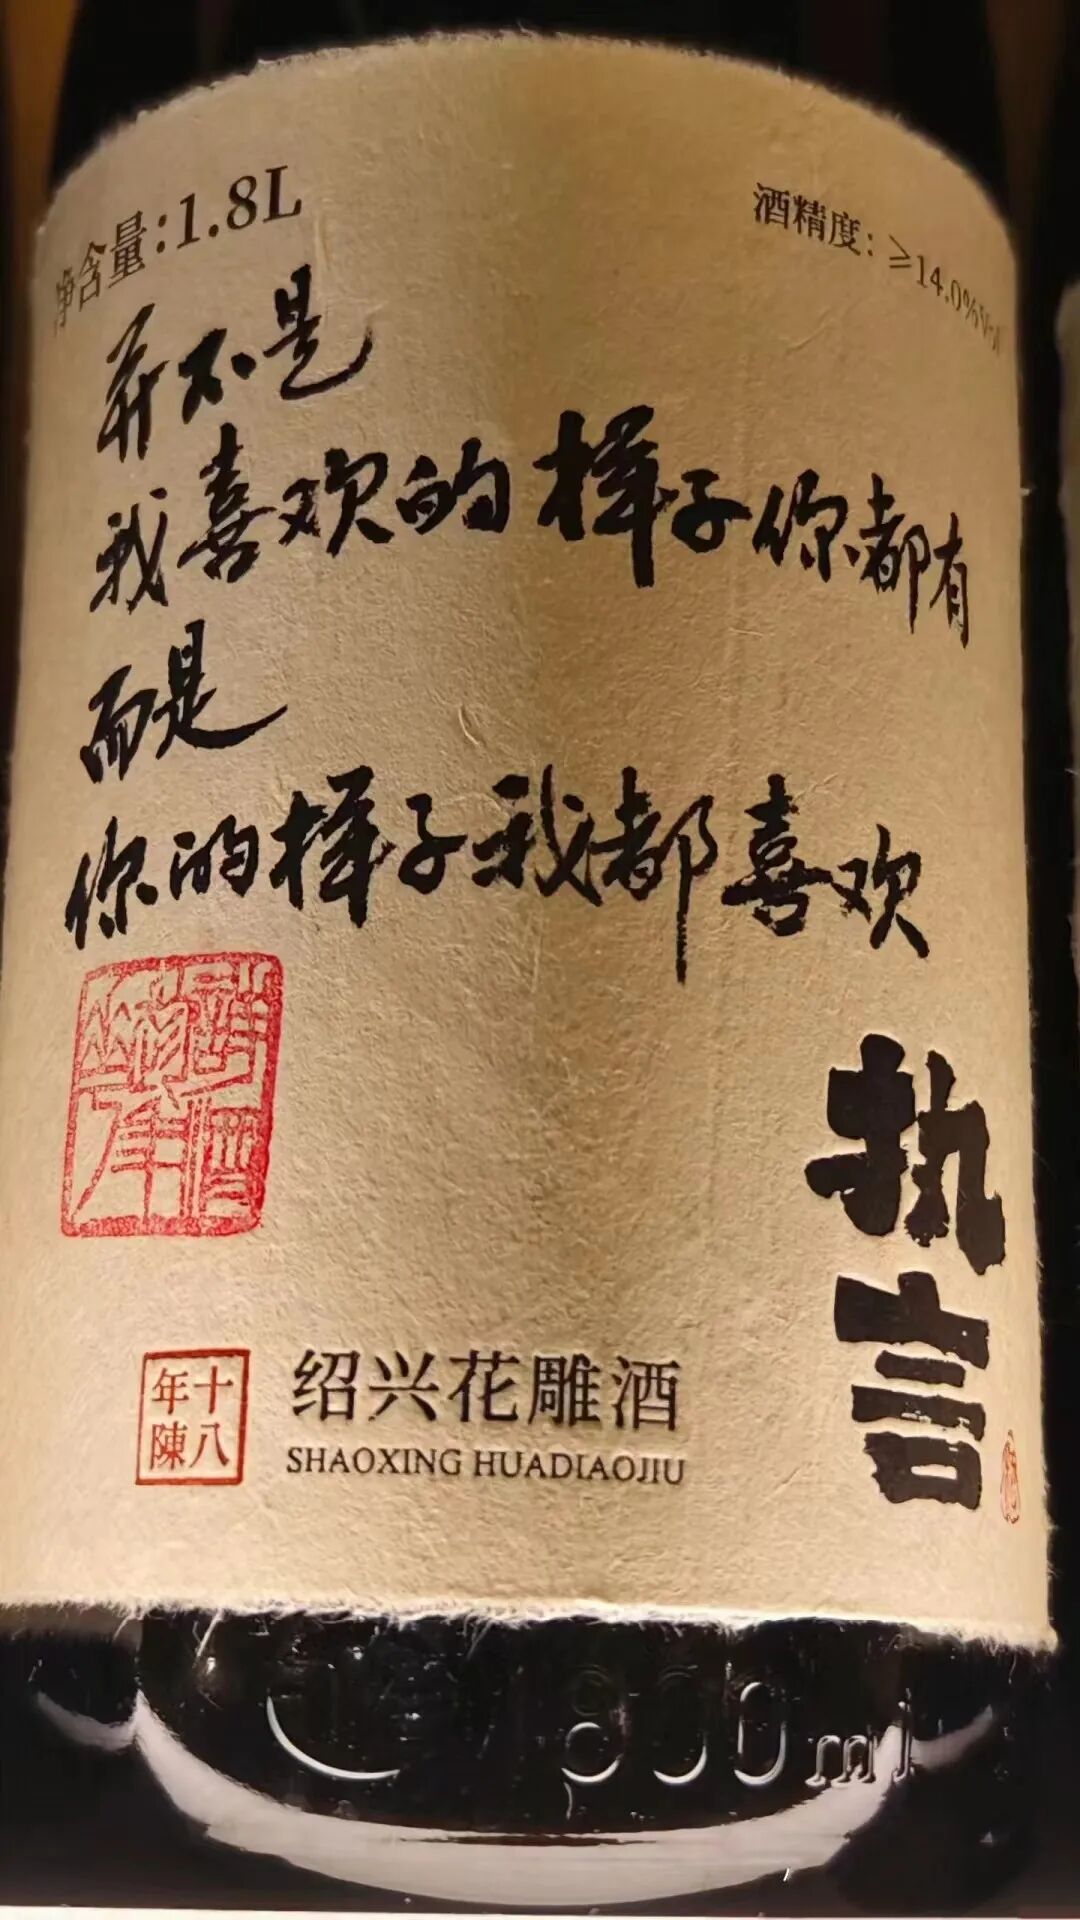 净含量:1.8L
酒精度: ≥14.0%vol
并不是
我喜欢的样子你都有
而是
你的样子我都喜欢
执言
十八年陳
绍兴花雕酒
SHAOXING HUADIAOJIU
1800ml